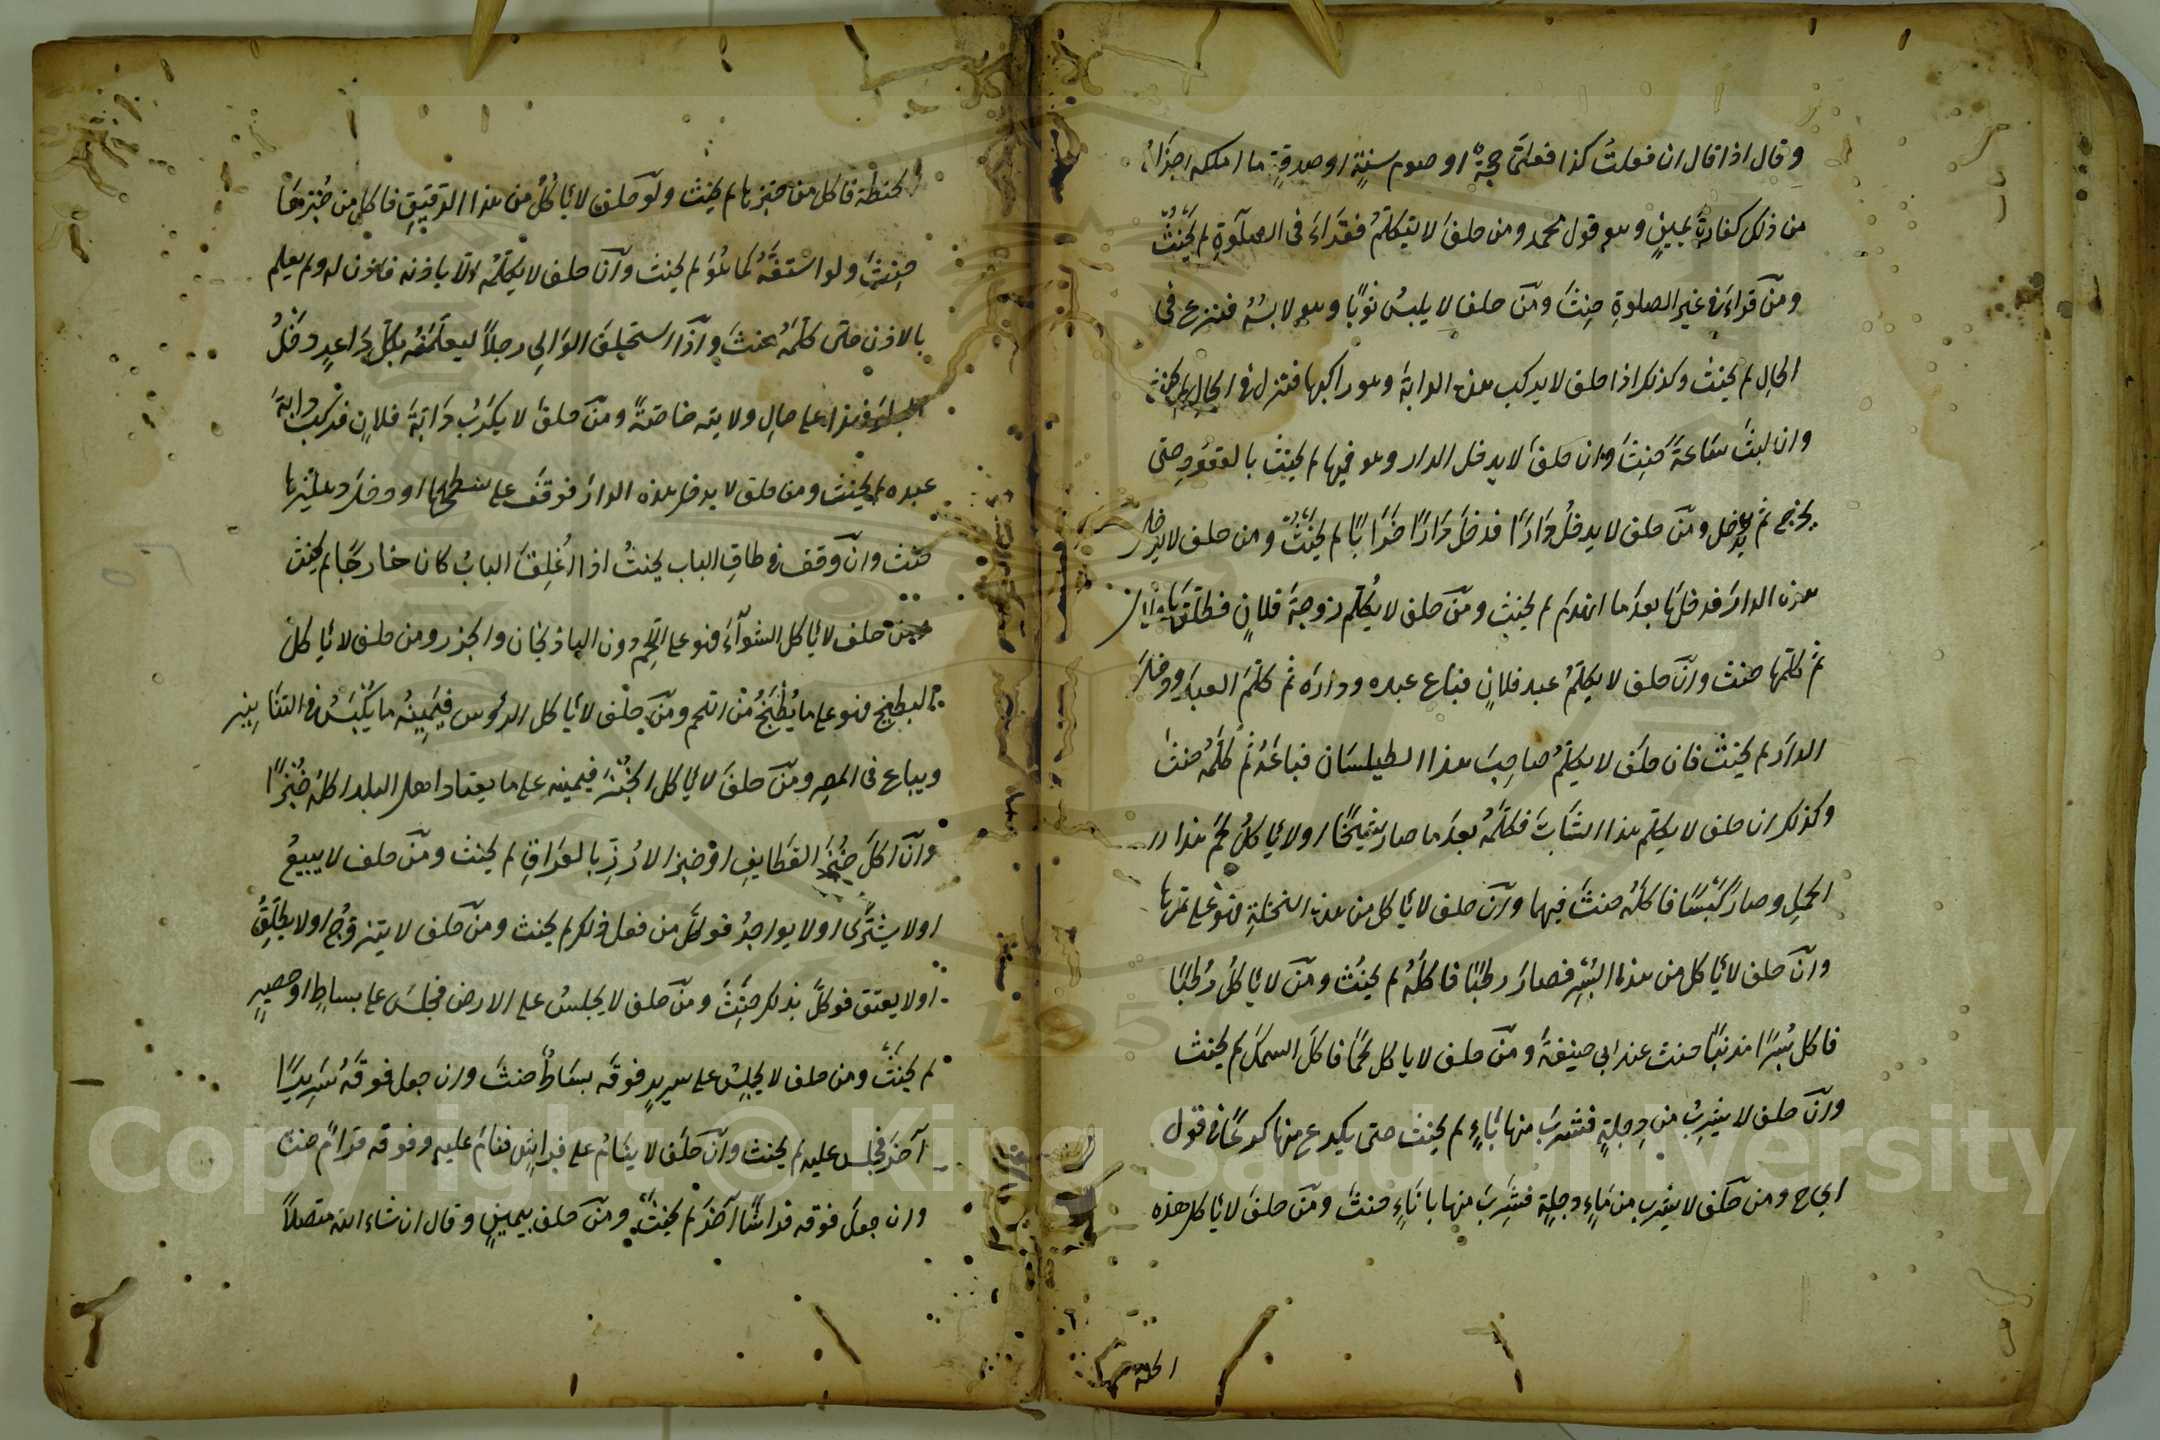 وقال اذا قال ان فعلت كذا فعلى حجة او صوم سنة او صدقة ما املكه اجزاه
من ذلك كفارة يمين وهو قول محمد ومن حلف لا يتكلم فقراء فى الصلوة لم يحنث
ومن قراء فى غير الصلوة حنث ومن حلف لا يلبس ثوبا وهو لابسه فنزع فى
الحال لم يحنث وكذلك اذا حلف لا يركب هذه الدابة وهو راكبها فنزل فى الحال لم يحنث
وان لبث ساعة حنث وان حلف لا يدخل الدار وهو فيها لم يحنث بالقعود حتى
يخرج ثم يدخل ومن حلف لا يدخل دارا فدخل دارا خرابا لم يحنث ومن حلف لا يدخل
هذه الدار فدخلها بعد ما انهدم لم يحنث ومن حلف لا يكلم زوجة فلان فطلقها فلان
ثم كلمها حنث وان حلف لا يكلم عبد فلان فباع عبده وداره ثم كلم العبد ودخل
الدار لم يحنث فان حلف لا يكلم صاحب هذا الطيلسان فباعه ثم كلمه حنث
وكذلك ان حلف لا يكلم هذا الشاب فكلمه بعد ما صار شيخا او لا يأكل لحم هذا
الحمل وصار كبشا فاكله حنث فيها وان حلف لا يأكل من هذه النخلة فهو على ثمرها
وان حلف لا يأكل من هذا البسر فصار رطبا فاكله لم يحنث ومن لا يأكل رطبا
فاكل بسرا مذنبا حنث عند ابى حنيفة ومن حلف لا ياكل لحما فاكل السمك لم يحنث
وان حلف لا يشرب من دجلة فشرب منها باناء لم يحنث حتى يكرع منها كرعا فى قول
ابى ح ومن حلف لا يشرب من ماء دجلة فشرب منها باناء حنث ومن حلف لا يأكل هذه
الحنطة
الحنطة فاكل من خبزها لم يحنث ولو حلف لا يأكل من هذا الدقيق فاكل من خبزها
حنث ولو استفه كما هو لم يحنث وان حلف لا يكلمه الا باذنه فاذن له ولم يعلم
بالاذن حتى كلمه حنث واذا استحلف الوالى رجلا ليعلمنه بكل داعر دخل
البلد فهذا على حال ولايته خاصة ومن حلف لا يركب دابة فلان فركب دابة
عبده لم يحنث ومن حلف لا يدخل هذه الدار فوقف على سطحها او دخل دهليزها
حنث وان وقف فى طاق الباب يحنث اذا اغلق الباب كان خارجا لم يحنث
ومن حلف لا يأكل الشواء فهو على اللحم دون الباذنجان والجزر ومن حلف لا يأكل
البطيخ فهو على ما يطبخ من اللحم ومن حلف لا يأكل الرؤس فيمينه ما يكبس فى التنانير
ويباع فى المصر ومن حلف لا يأكل الخبز فيمينه على ما يعتاد اهل البلد اكله خبزا
وان اكل خبز القطايف او خبز الارز بالعراق لم يحنث ومن حلف لا يبيع
او لا يشترى او لا يواجر فوكل من فعل ذلك لم يحنث ومن حلف لا يتزوج او لا يطلق
او لا يعتق فوكل بذلك حنث ومن حلف لا يجلس على الارض فجلس على بساط او حصير
لم يحنث ومن حلف لا يجلس على سرير فوقه بساط حنث وان جعل فوقه سريرا
آخر فجلس عليه لم يحنث وان حلف لا ينام على فراش فنام عليه وفوقه قرام حنث
وان جعل فوقه فراشا آخر لم يحنث ومن حلف بيمين وقال ان شاء الله متصلا
Copyright © King Saud University
1957